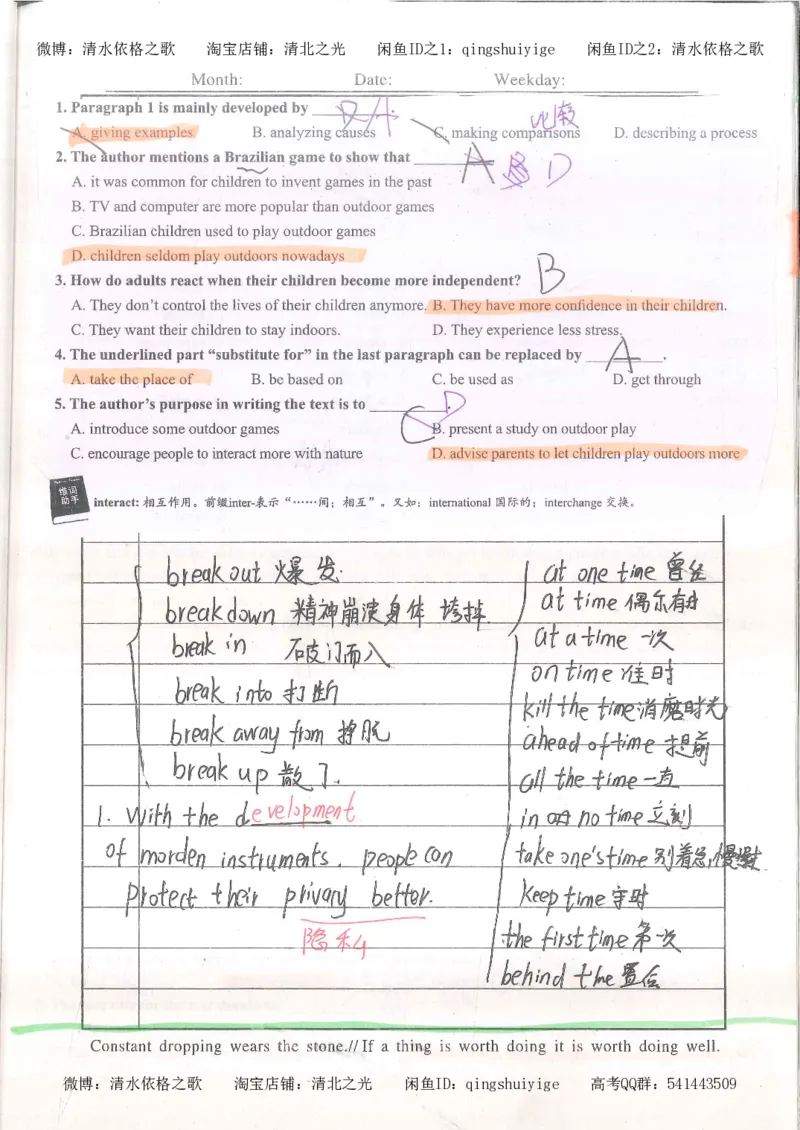 微博：清水依格之歌 淘宝店铺：清北之光 闲鱼ID之1：qingshuiyige 闲鱼ID之2：清水依格之歌
Month: Date: Weekday:
1. Paragraph 1 is mainly developed by ______ A.
比较
A. giving examples B. analyzing causes C. making comparisons D. describing a process
2. The author mentions a Brazilian game to show that ______ A D
A. it was common for children to invent games in the past
B. TV and computer are more popular than outdoor games
C. Brazilian children used to play outdoor games
D. children seldom play outdoors nowadays
3. How do adults react when their children become more independent? B
A. They don't control the lives of their children anymore. B. They have more confidence in their children.
C. They want their children to stay indoors. D. They experience less stress.
4. The underlined part “substitute for” in the last paragraph can be replaced by ___A___.
A. take the place of B. be based on C. be used as D. get through
5. The author's purpose in writing the text is to ______. D
C
A. introduce some outdoor games B. present a study on outdoor play
C. encourage people to interact more with nature D. advise parents to let children play outdoors more
维词
助手
interact: 相互作用。前缀inter-表示“……间；相互”。又如：international 国际的；interchange 交换。
break out 爆发.
break down 精神崩溃身体 垮掉.
break in 破门而入
break into 打断
break away from 挣脱
break up 散了.
1. With the development
of morden instruments. people can
protect their privary better.
隐私
at one time 曾经
at time 偶尔有时
at a time 一次
on time 准时
kill the time 消磨时光
ahead of time 提前
all the time 一直
in no time 立刻
take one's time 别着急,慢慢
keep time 守时
the first time 第一次
behind time 置后
Constant dropping wears the stone.// If a thing is worth doing it is worth doing well.
微博：清水依格之歌 淘宝店铺：清北之光 闲鱼ID：qingshuiyige 高考QQ群：541443509